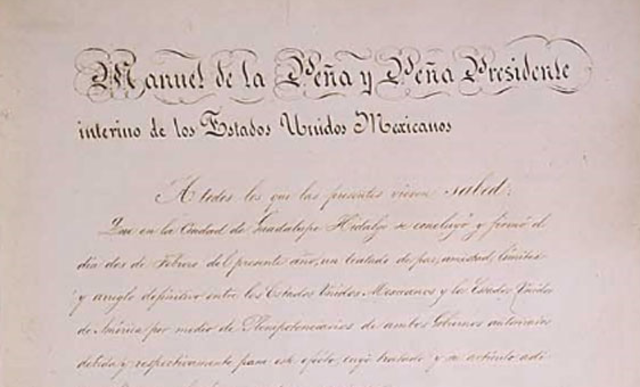 Manuel de la Peña y Peña Presidente
interino de los Estados Unidos Mexicanos
A todos los que las presentes vieren sabed:
Que en la Ciudad de Guadalupe Hidalgo se concluyó y firmó el
dia dos de Febrero del presente año, un tratado de paz, amistad, límites
y arreglo definitivo entre los Estados Unidos Mexicanos y los Estados Unidos
de América por medio de Plenipotenciarios de ambos Gobiernos autorizados
debida y respectivamente para este efecto, cuyo tratado y su artículo adi